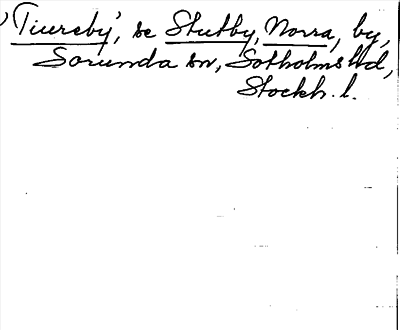 'Tiureby', se Stutby, Norra, by,
Sorunda sn, Sotholms hd,
Stockh. l.